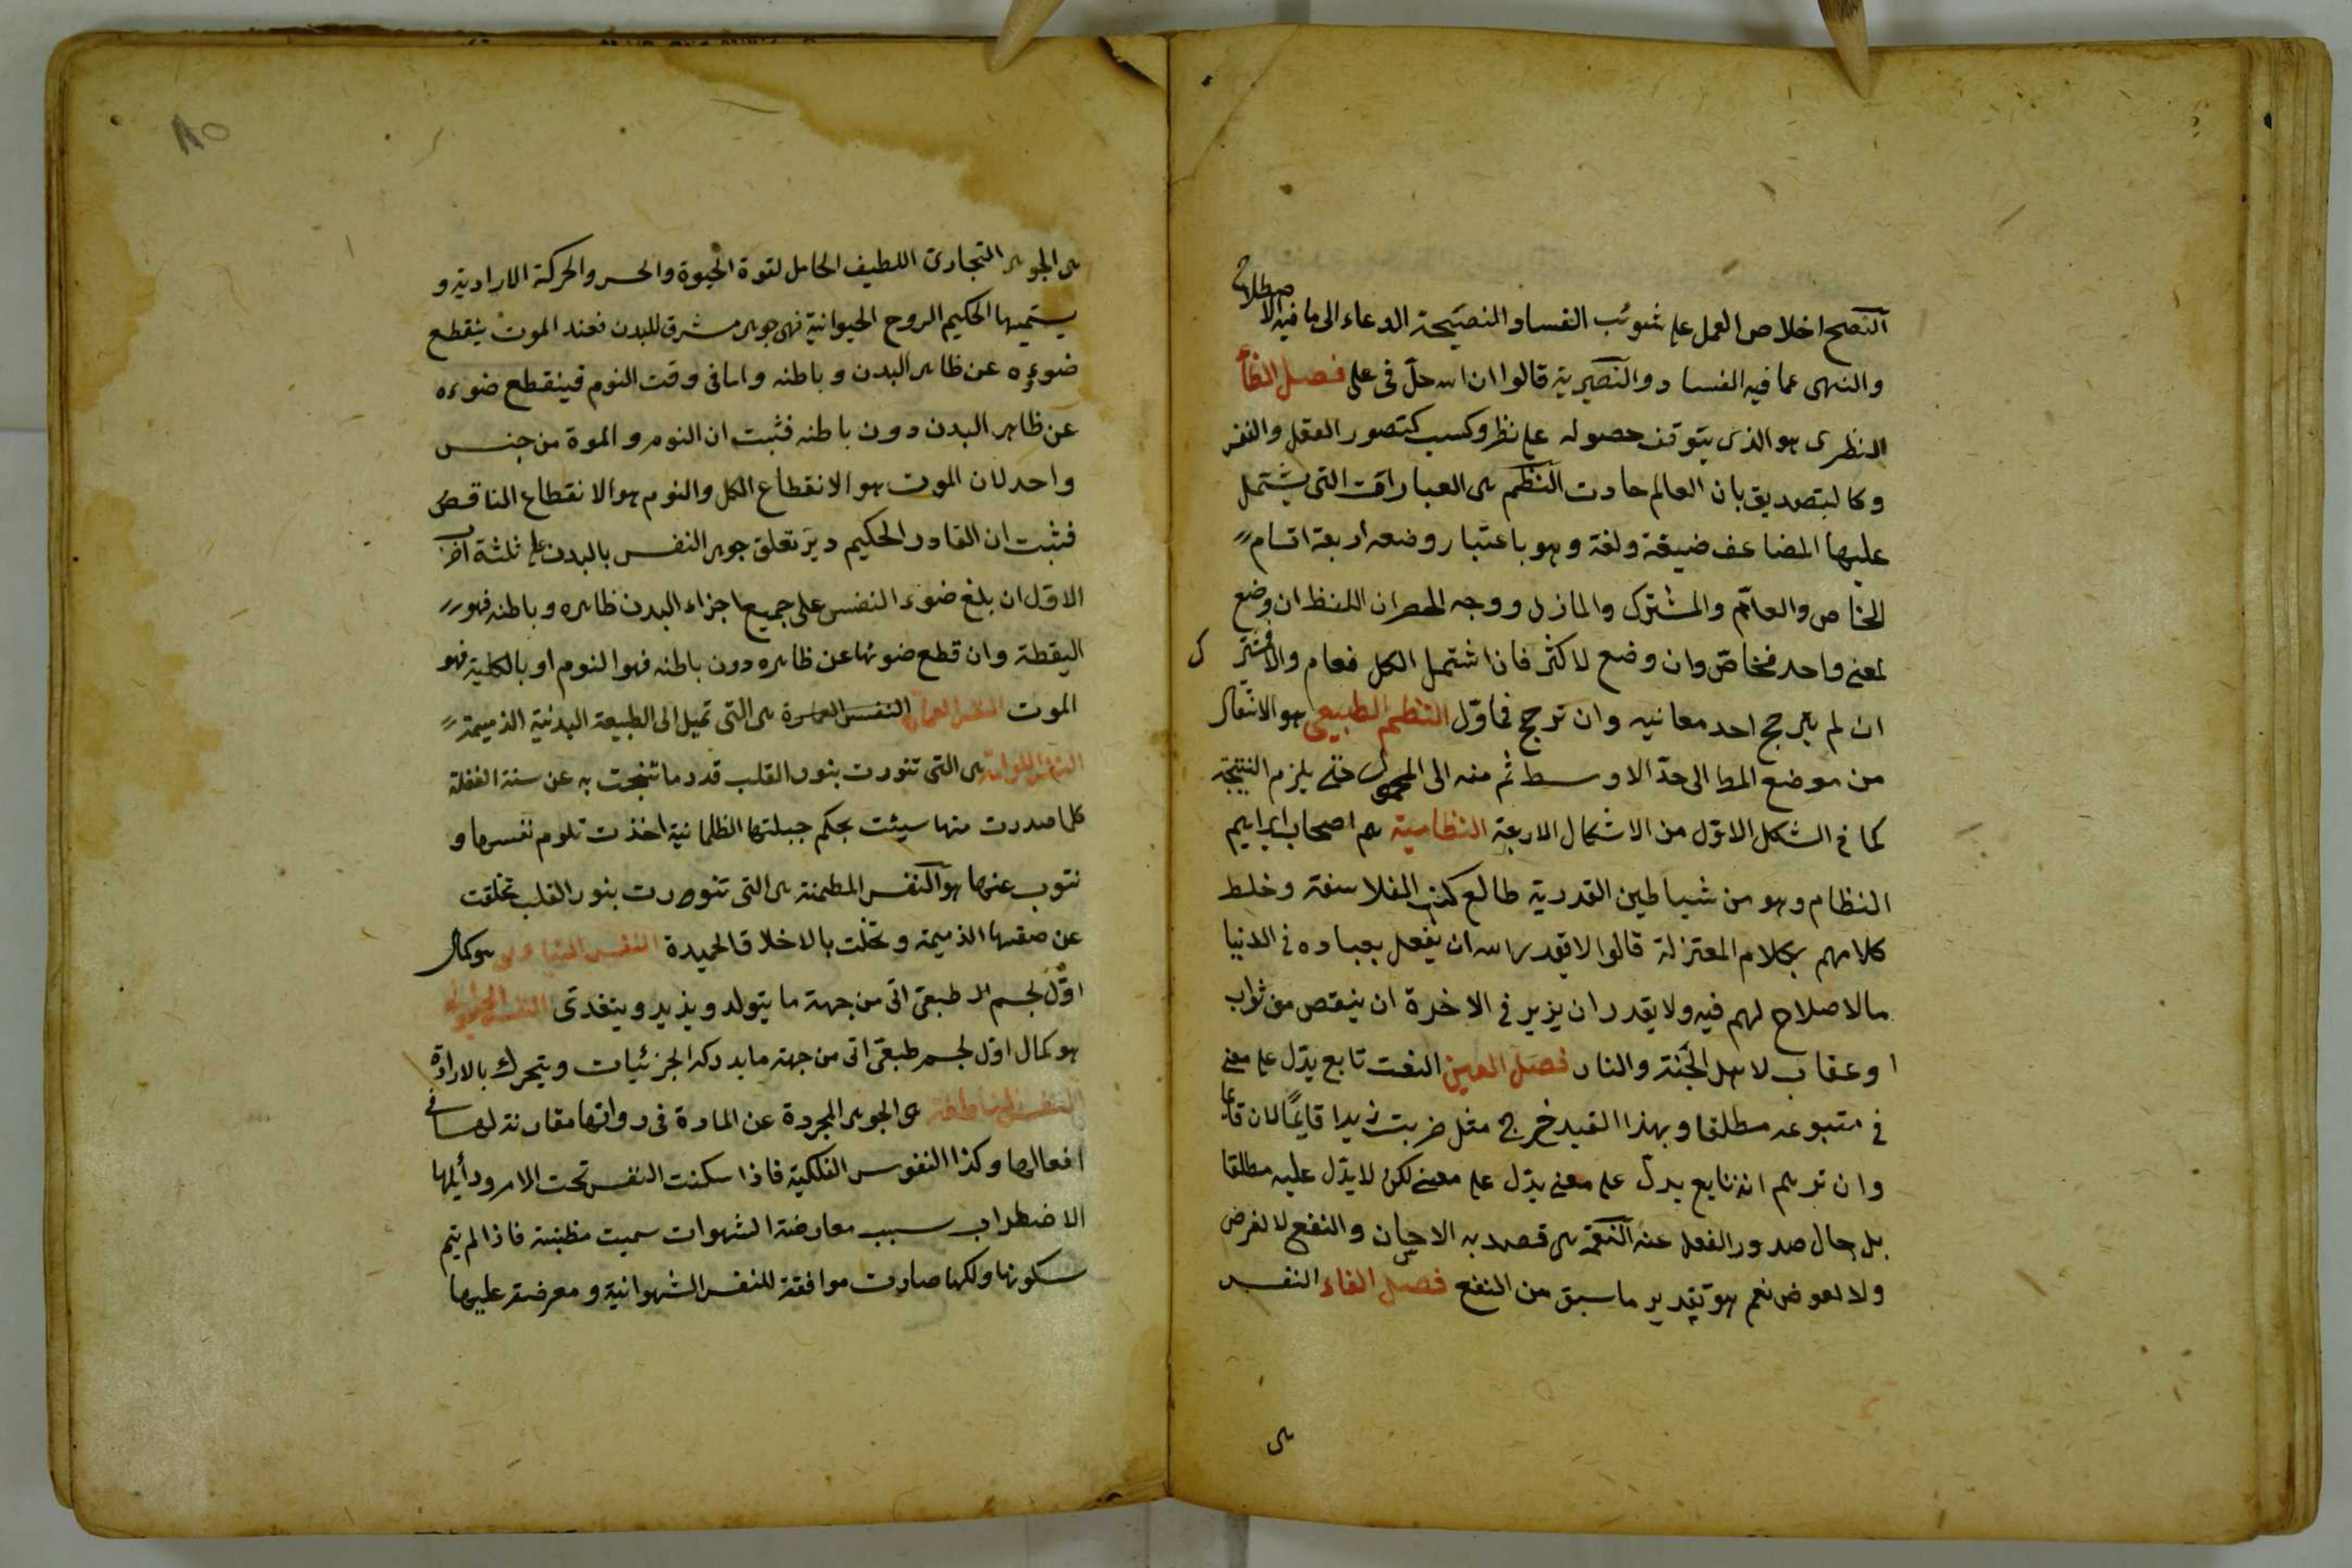 النصح اخلاص العمل على شوئب الفساد والنصيحة الدعاء الى ما فيه الاصطلاح
والنهى عما فيه الفساد والنصيرية قالوا ان الله حلّ فى على فصل الظاء
النظرى هو الذى يتوقف حصوله على نظر وكسب كتصور العقل والنفس
وكالتصديق بان العالم حادث النظم هى العبارات التى يشتمل
عليها المضاعف ضيقة ولغة وهو باعتبار وضعه اربعة اقسام
الخاص والعام والمشترك والماؤل ووجه الحصر ان اللفظ ان وضع
لمعنى واحد فخاص وان وضع لاكثر فان اشتمل الكل فعام والا فمشترك
ان لم يترجح احد معانيه وان ترجح فماوّل النظم الطبيعى هو الانتقال
من موضع المط الى حدّ الاوسط ثم منه الى المحمول حتى يلزم النتيجة
كما فى الشكل الاوّل من الاشكال الاربعة النظامية هم اصحاب ابراهيم
النظام وهو من شياطين القدرية طالع كتب الفلاسفة وخلط
كلامهم بكلام المعتزلة قالوا لا يقدر الله ان يفعل بعباده فى الدنيا
مالا صلاح لهم فيه ولا يقدر ان يزيد فى الاخرة ان ينقص من ثواب
او عقاب لاهل الجنة والنار فصل العين النعت تابع يدّل على معنى
فى متبوعه مطلقا وبهذا القيد خرج مثل ضربت زيدا قايمًا لان قايما
وان توهم انه تابع يدلّ على معنى يدّل على معنى لكن لا يدّل عليه مطلقا
بل حال صدور الفعل عنه النعمة هى قصد به الاحسان والنفع لا لغرض
ولا لعوض نعم هو تقدير ما سبق من النفع فصل الفاء النفس
هى
٨٥
هى الجوهر التجارى اللطيف الحامل لقوة الحيوة والحس والحركة الارادية و
يسميها الحكيم الروح الحيوانية فهى جوهر مشرق للبدن فعند الموت ينقطع
ضوءه عن ظاهر البدن وباطنه واما فى وقت النوم فينقطع ضوءه
عن ظاهر البدن دون باطنه فثبت ان النوم والموة من جنس
واحد لان الموت هو الانقطاع الكل والنوم هو الانقطاع الناقص
فثبت ان القادر الحكيم دبّر تعلق جوهر النفس بالبدن على ثلثة اضرب
الاوّل ان بلغ ضوء النفس على جميع اجزاء البدن ظاهره وباطنه فهو
اليقظة وان قطع ضوئها عن ظاهره دون باطنه فهو النوم او بالكلية فهو
الموت النفس العمارة هى التى تميل الى الطبيعة البدنية الذميمة
النفس اللوامة هى التى تنورت بنور القلب قدر ما تنبهت به عن سنة الغفلة
كلما صدرت منها سيئت بحكم جبلتها الظلمانية اخذت تلوم نفسها و
نتوب عنها هو النفس المطمئنة هى التى تنورت بنور القلب تخلقت
عن صفتها الذميمة وتحلت بالاخلاق الحميدة النفس النباتى هو كمال
اوّل لجسم طبعى اتى من جهة ما يتولد ويذيد ويتغدى النفس الحيوانى
هو كمال اوّل لجسم طبعى اتى من جهة ما يدركه الجزئيات ويتحرك بالارادة
النفس الناطقة هى الجوهر المجردة عن المادة فى ذواتها مقارنة لها فى
افعالها وكذا النفوس الفلكية فاذا سكنت النفس تحت الامر
الاضطراب سبب معارضة الشهوات سميت مطمئنة فاذا لم يتم
سكونها ولكنها صارت موافقة للنفس الشهوانية ومعرضة عليها